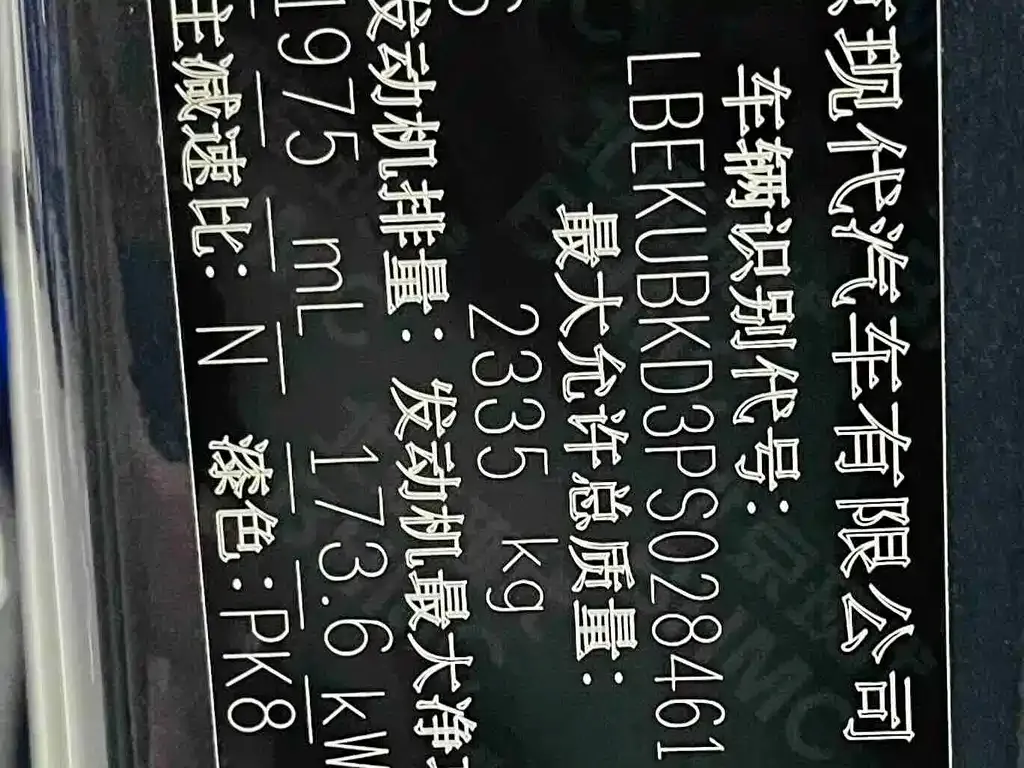 现代汽车有限公司
车辆识别代号:
LBEKUBKD3PS028461
最大允许总质量:
2335 kg
发动机排量: 发动机最大净
1975 mL 173.6 kW
主减速比: N 漆色:PK8